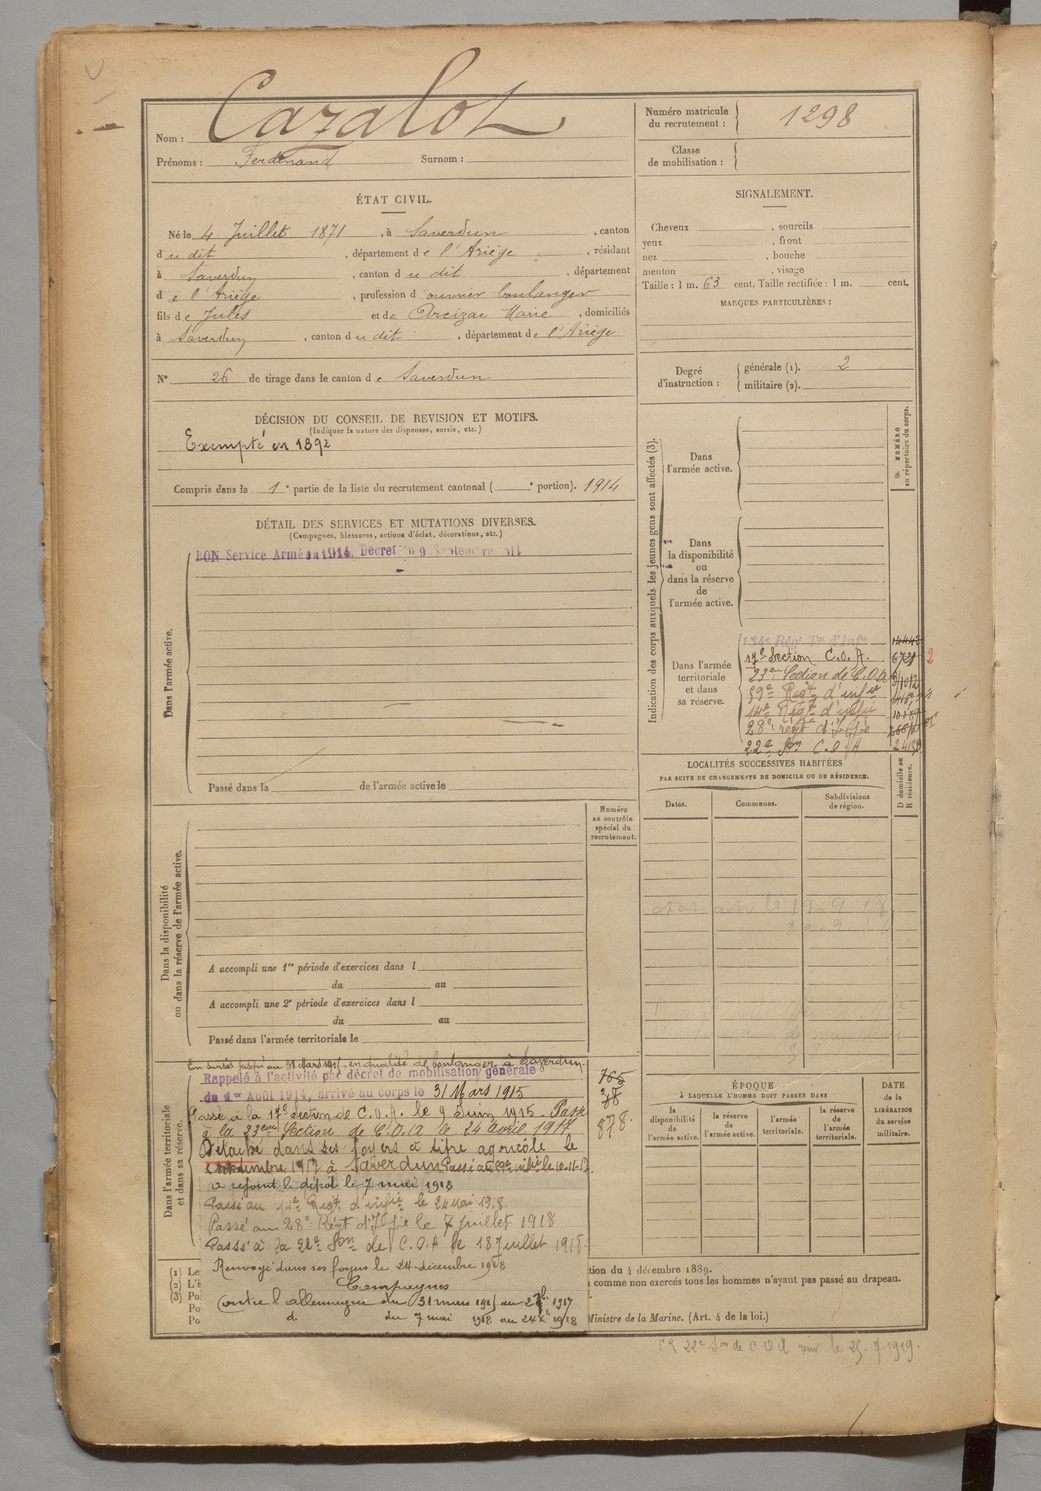 Nom : Cazalot
Prénoms : Ferdinand Surnom :
Numéro matricule du recrutement : 1298
Classe de mobilisation :
ÉTAT CIVIL.
Né le 4 Juillet 1871, à Saverdun, canton
du dit, département de l'Ariège, résidant
à Saverdun, canton du dit, département
de l'Ariège, profession d'ouvrier boulanger
fils de Jules et de Arcizac Marie, domiciliés
à Saverdun, canton du dit, département de l'Ariège
N° 26 de tirage dans le canton de Saverdun
SIGNALEMENT.
Cheveux , sourcils
yeux , front
nez , bouche
menton , visage
Taille : 1 m. 63 cent. Taille rectifiée : 1 m. cent.
MARQUES PARTICULIÈRES :
Degré d'instruction :
générale (1). 2
militaire (2).
DÉCISION DU CONSEIL DE REVISION ET MOTIFS.
(Indiquer la nature des dispenses, sursis, etc.)
Exempté en 1892
Compris dans la 1e partie de la liste du recrutement cantonal ( e portion). 1914
DÉTAIL DES SERVICES ET MUTATIONS DIVERSES.
(Campagnes, blessures, actions d'éclat, décorations, etc.)
BON Service Armé en 1914. Décret du 9 Septembre 1914
Dans l'armée active.
Passé dans la de l'armée active le
Indication des corps auxquels les jeunes gens sont affectés (3).
NUMÉRO au répertoire du corps.
Dans l'armée active.
Dans la disponibilité ou dans la réserve de l'armée active.
Dans l'armée territoriale et dans sa réserve.
17e Section C.O.A. 6721 2
23eme Section de C.O.A
59e Régt d'infie
14e Régt d'infie
28e régt d'Infie
22e Son C.O.A
LOCALITÉS SUCCESSIVES HABITÉES
PAR SUITE DE CHANGEMENTS DE DOMICILE OU DE RÉSIDENCE.
Dates. Communes. Subdivisions de région.
D domicile ou R résidence.
Numéro au contrôle spécial du recrutement.
Dans la disponibilité ou dans la réserve de l'armée active.
A accompli une 1re période d'exercices dans l
du au
A accompli une 2e période d'exercices dans l
du au
Passé dans l'armée territoriale le
Dans l'armée territoriale et dans sa réserve.
En sursis jusqu'au 31 Mars 1915, en qualité de boulanger à Saverdun
Rappelé à l'activité par décret de mobilisation générale 765
du 1er Août 1914, arrivé au corps le 31 Mars 1915 78
Passé à la 17e Section de C.O.A. le 9 Juin 1915 Passé 878
à la 23eme Section de C.O.A le 24 avril 1917
Détaché dans ses foyers à titre agricole le
1917 à Saverdun
a rejoint le dépôt le 7 mai 1918
Passé au 14e Régt d'infie le 24 Mai 1918.
Passé au 28e Régt d'Infie le 7 juillet 1918
Passé à la 22e Son de C.O.A le 18 juillet 1918.
Renvoyé dans ses foyers le 24 décembre 1918
Campagnes
Contre l'allemagne du 31 mars 1915 au 1917
d du 7 mai 1918 au 24 Xbre 1918
ÉPOQUE
À LAQUELLE L'HOMME DOIT PASSER DANS
la disponibilité de l'armée active.
la réserve de l'armée active.
l'armée territoriale.
la réserve de l'armée territoriale.
DATE de la LIBÉRATION du service militaire.
(1) Le
(2) L'i
(3) Po
Po
Po
tion du 4 décembre 1889.
comme non exercés tous les hommes n'ayant pas passé au drapeau.
Ministre de la Marine. (Art. 4 de la loi.)
22e Son de C.O.A le 25-7-1919.